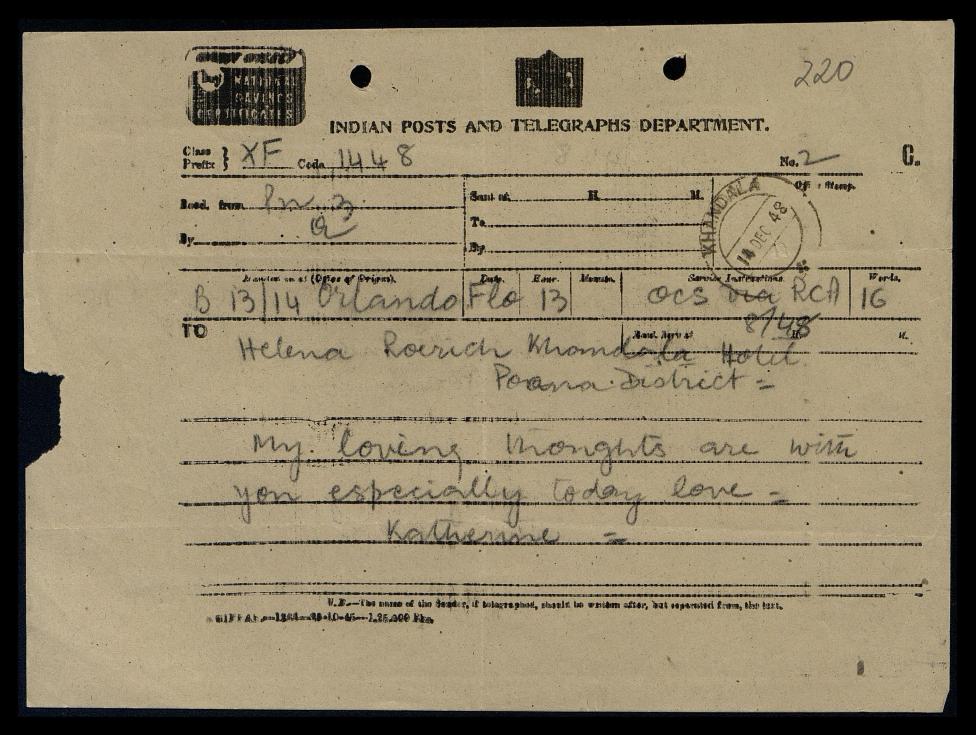 220
buy NATIONAL
SAVINGS
CERTIFICATES
INDIAN POSTS AND TELEGRAPHS DEPARTMENT.
Class Prefix } XF Code 1448 No. 2 C.
Recd. from Sent at H. M. Office Stamp.
To
By By
KHANDALA
14 DEC 48
Handed in at (Office of Origin). Date. Hour. Minute. Service Instructions. Words.
B 13/14 Orlando Flo 13 OCS via RCA 16
8/48
TO Recd. here at H. M.
Helena Roerich Khandala Hotel
Poona District =
My loving thoughts are with
you especially today love =
Katherine =
N.B.—The name of the Sender, if telegraphed, should be written after, but separated from, the text.